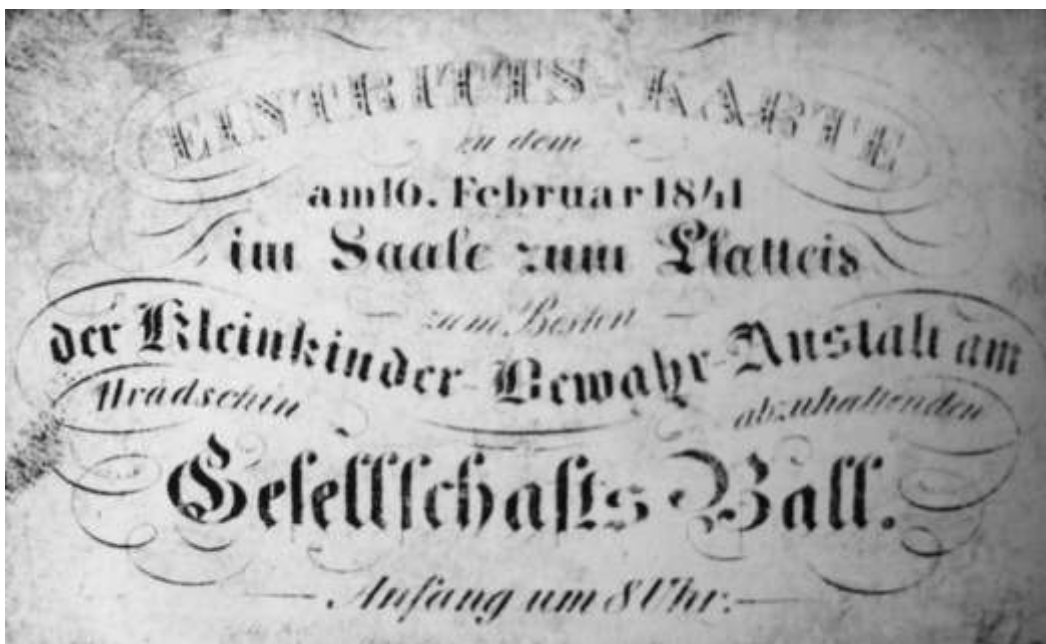 EINTRITTS-KARTE
zu dem
am 10. Februar 1841
im Saale zum Platteis
zum Besten
der Kleinkinder-Bewahr-Anstalt am
Hradschin abzuhaltenden
Gesellschafts-Ball.
Anfang um 8 Uhr.